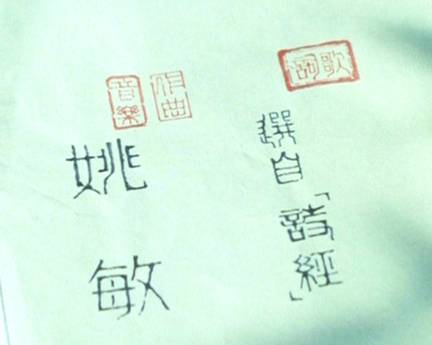 歌詞
選自「詩經」
作曲
音樂
姚敏